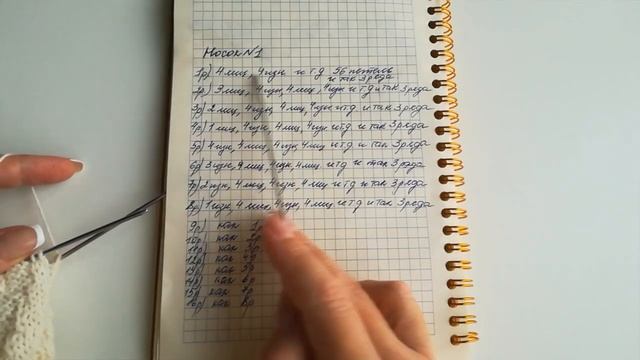 Носок №1
1р) 4 лиц, 4 изн и т д 56 петель
и так 3 ряда
2р) 3 лиц, 4 изн, 4 лиц, 4 изн и т д и так 3 ряда
3р) 2 лиц, 4 изн, 4 лиц, 4 изн и т д и так 3 ряда
4р) 1 лиц, 4 изн, 4 лиц, 4 изн и т д и так 3 ряда
5р) 4 изн, 4 лиц, 4 изн, 4 лиц и т д и так 3 ряда
6р) 3 изн, 4 лиц, 4 изн, 4 лиц и т д и так 3 ряда
7р) 2 изн, 4 лиц, 4 изн, 4 лиц и т д и так 3 ряда
8р) 1 изн, 4 лиц, 4 изн, 4 лиц и т д и так 3 ряда
9р) как 1р
10р) как 2р
11р) как 3р
12р) как 4р
13р) как 5р
14р) как 6р
15р) как 7р
16р) как 8р